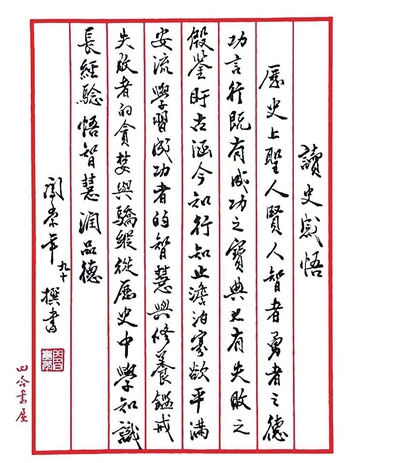 讀史感悟
歷史上聖人賢人智者勇者之德
功言行既有成功之寶典也有失敗之
殷鉴盱古涵今知行知止澹泊寡欲平满
安流學習成功者的智慧與修養鑑戒
失敗者的貪婪與驕縱從歷史中學知識
長經驗悟智慧润品德
阎崇年 九十 撰書
四合書屋